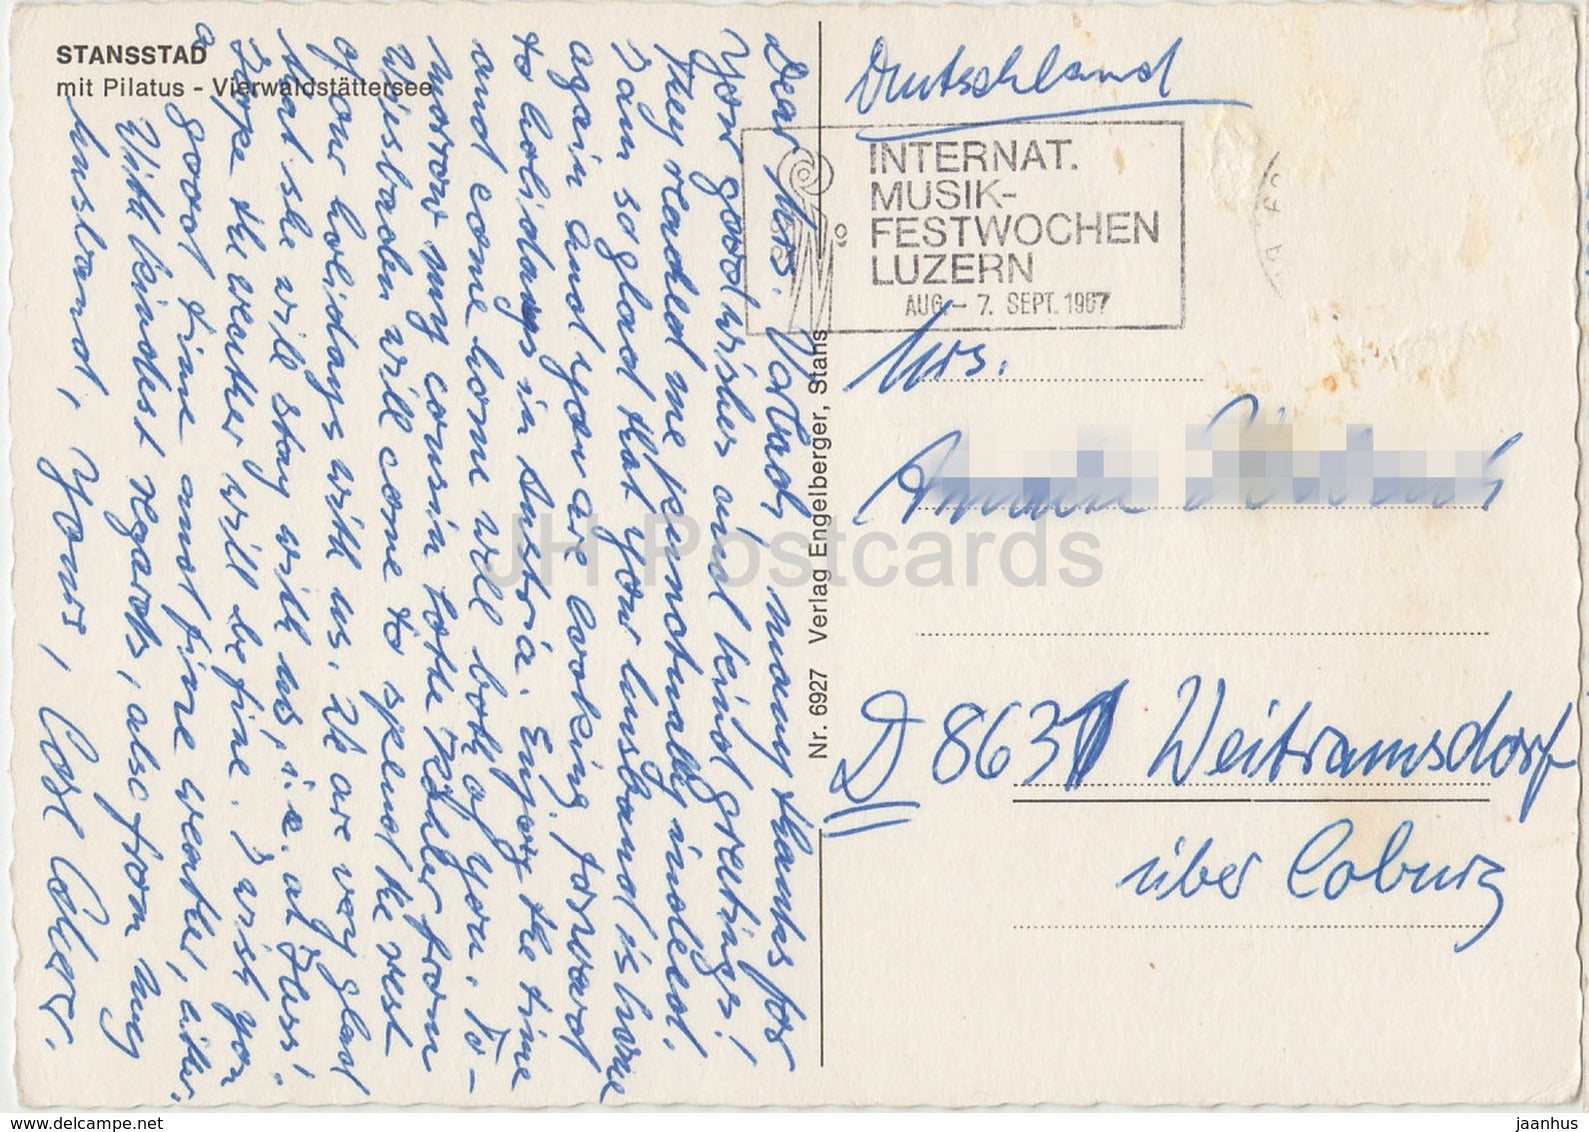 STANSSTAD
mit Pilatus - Vierwaldstättersee
Dear Mrs. many thanks for
your good wishes and kind greetings!
They reached me punctually indeed.
I am so glad that your husband is home
again and you are looking forward
to holidays in Austria. Enjoy the time
and come home well both of you. To-
morrow my cousin Lotte from
Wiesbaden will come to spend the rest
of our holidays with us. We are very glad
that she will stay with us, i.e. at
I hope the weather will be fine. I wish you
a good time and fine weather,
With kindest regards, also from my
husband, Yours,
Nr. 6927 Verlag Engelberger, Stans
Deutschland
INTERNAT.
MUSIK-
FESTWOCHEN
LUZERN
AUG. - 7. SEPT. 1967
Mrs.
D 8631 Weitramsdorf
über Coburg
JH Postcards
www.delcampe.net
jaanhus